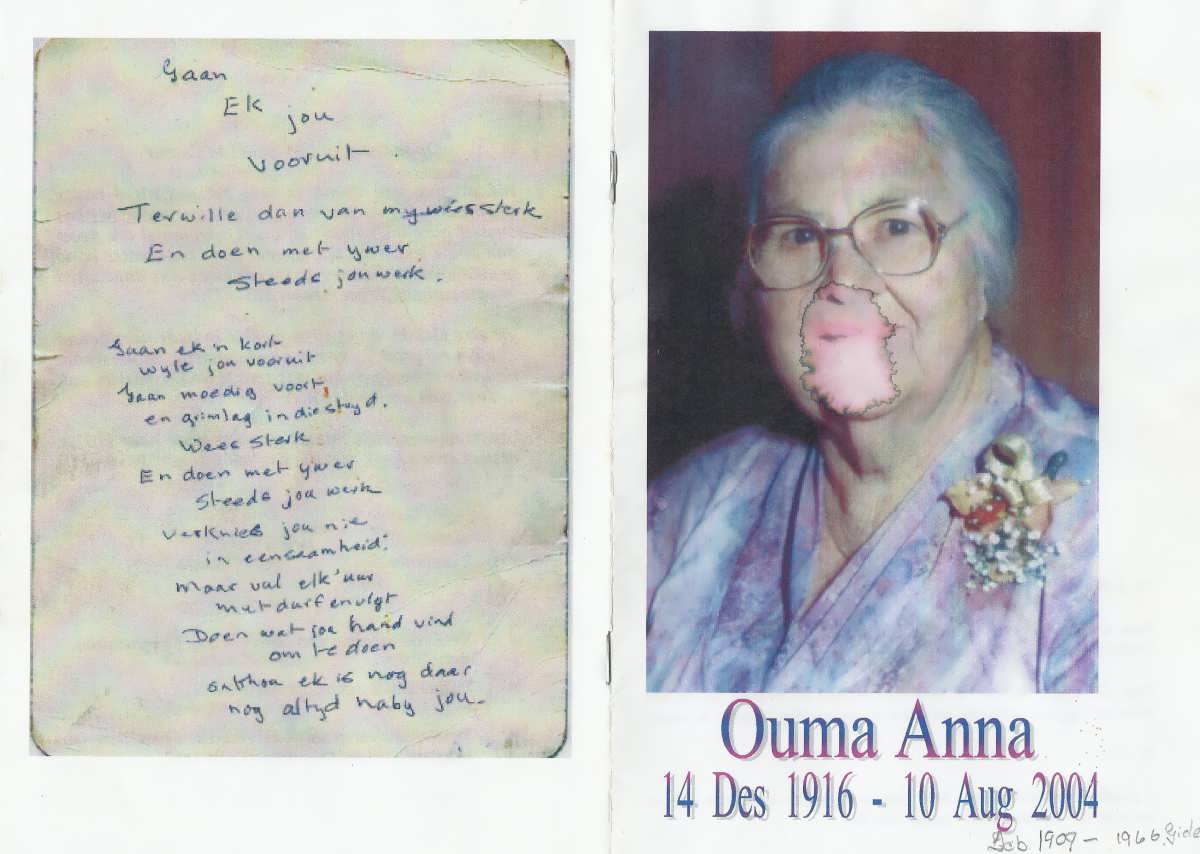 Gaan
Ek jou
vooruit.
Terwille dan van my wees sterk
En doen met ywer
Steeds jou werk.
Gaan ek 'n kort
wyle jou vooruit
Gaan moedig voort,
en grimlag in die stryd.
Wees Sterk
En doen met ywer
Steeds jou werk
verknies jou nie
in eensaamheid.
Maar vul elk' uur
met durf en vlyt
Doen wat jou hand vind
om te doen
onthou ek is nog daar
nog altyd naby jou.
Ouma Anna
14 Des 1916 - 10 Aug 2004
1909 - 1966